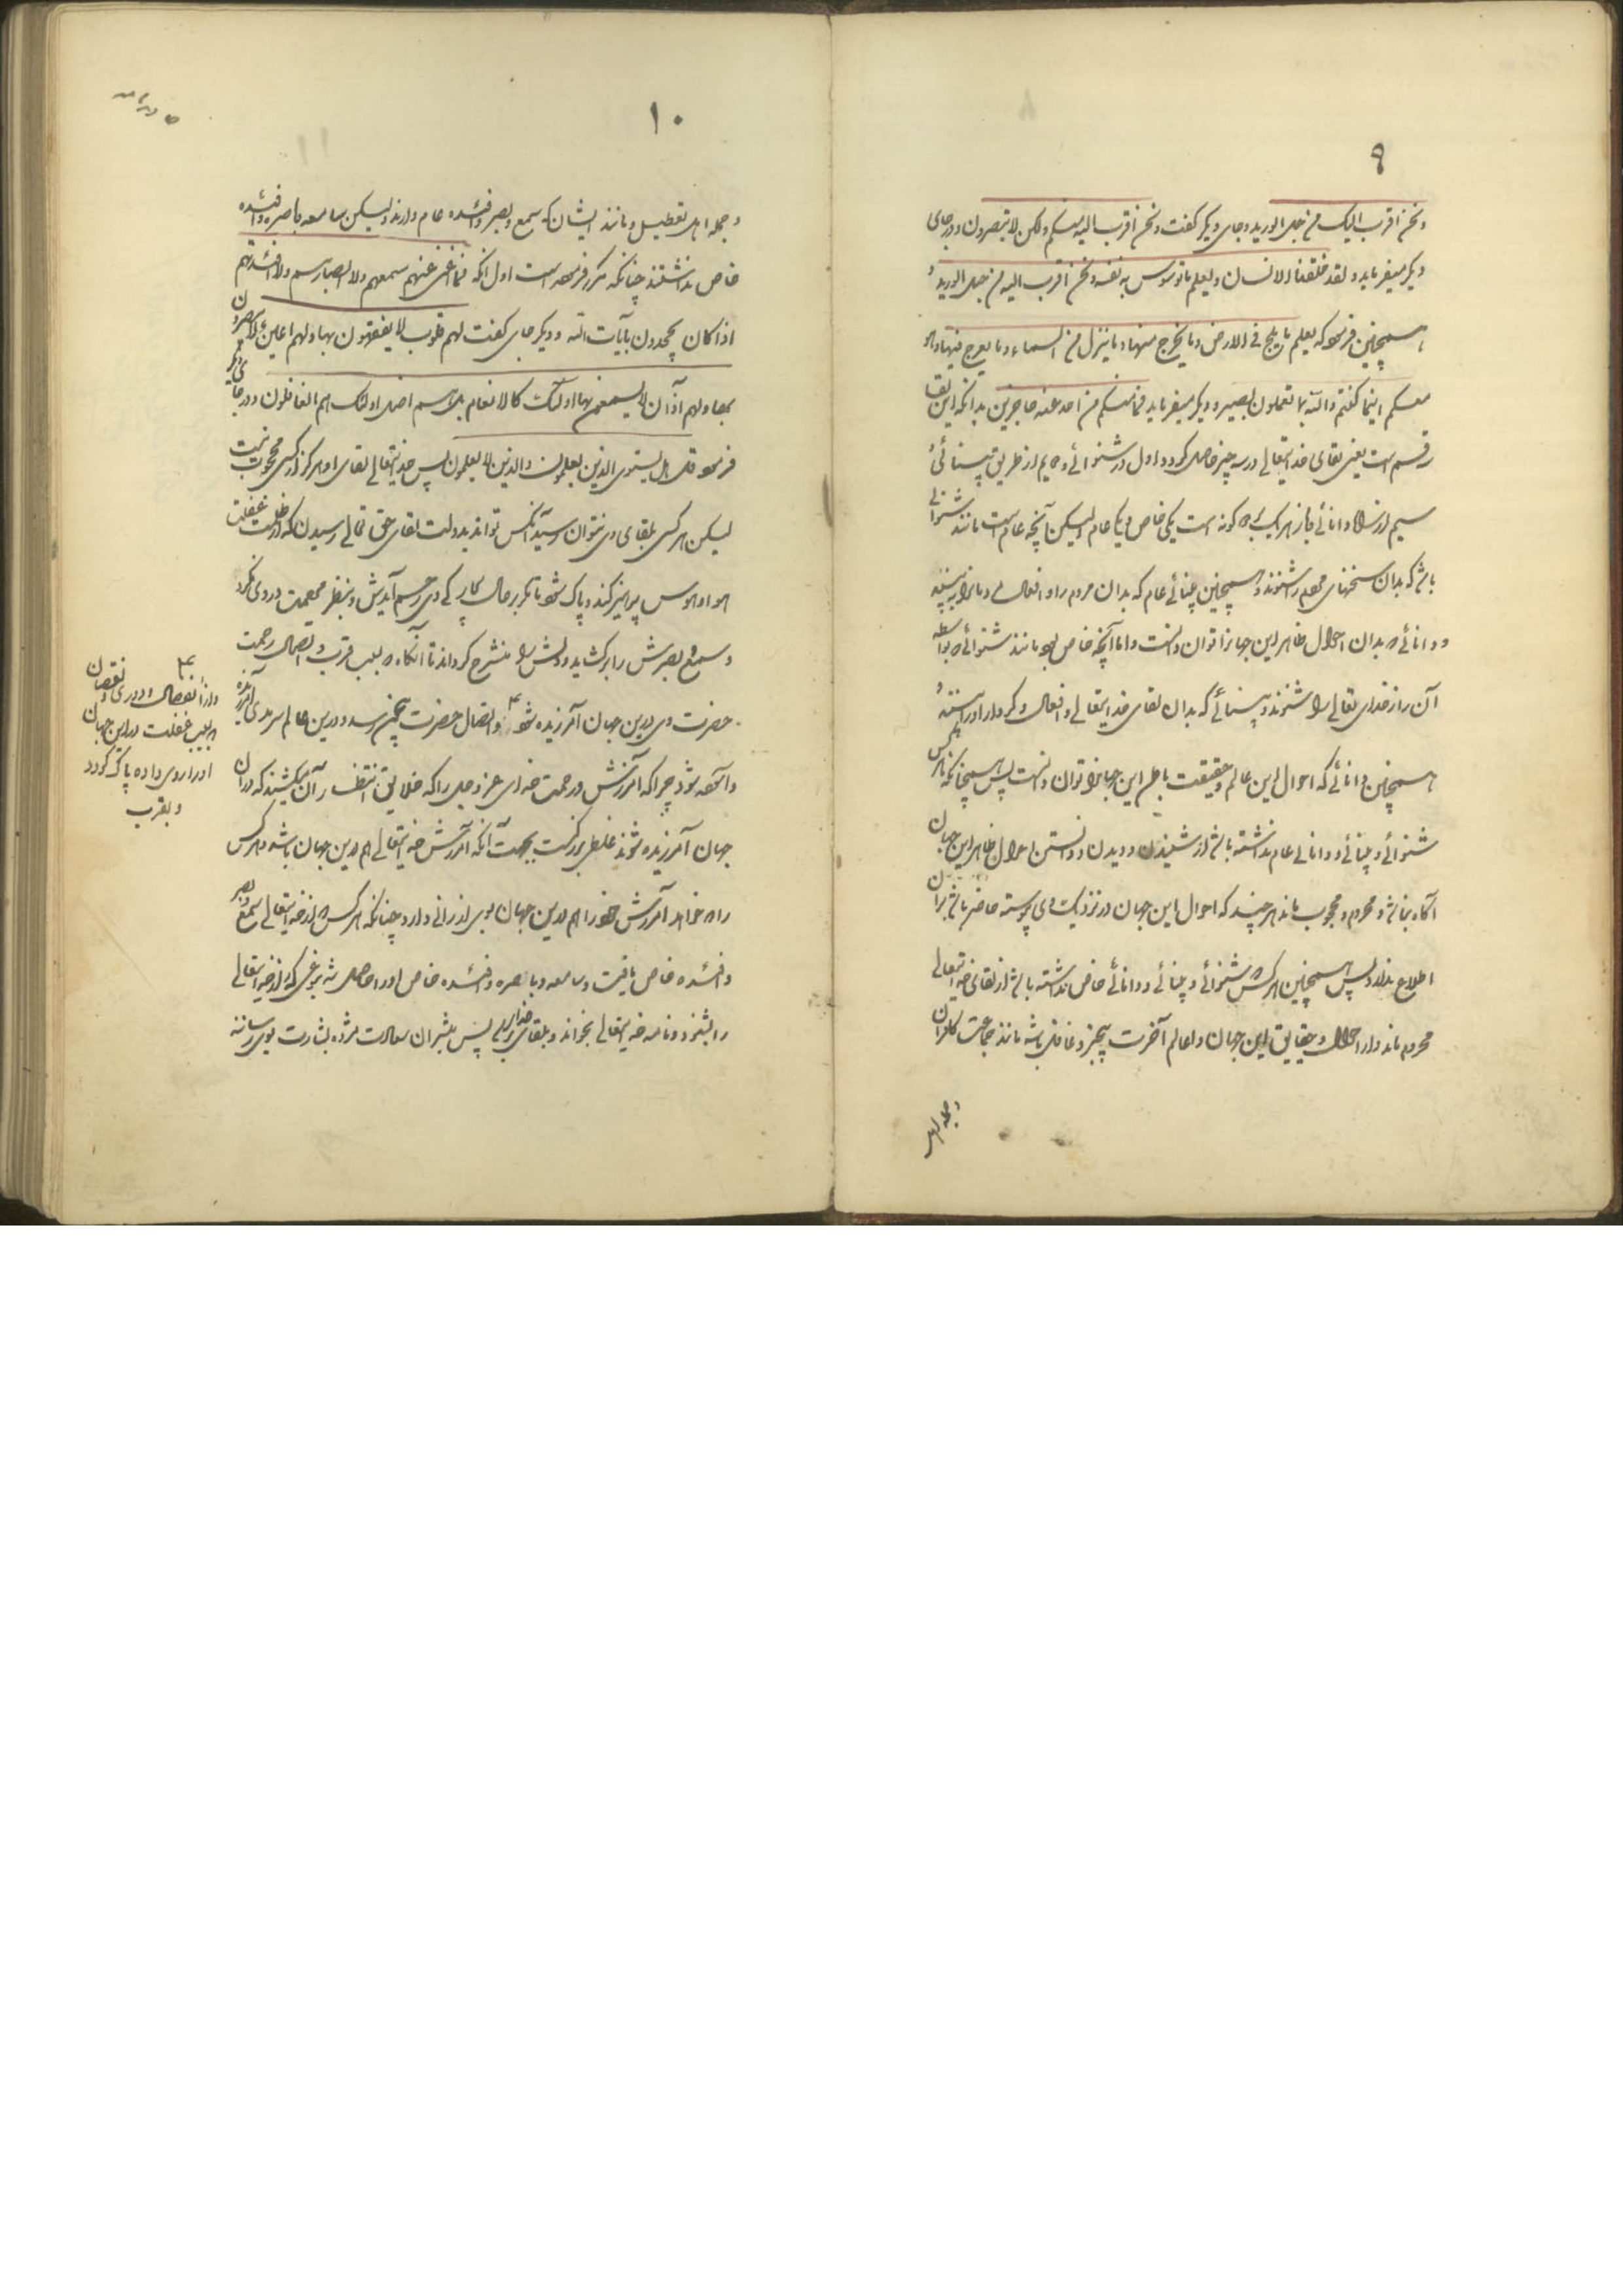 ۹
ونحن اقرب الیک من حبل الورید وجای دیکر کفت ونحن اقرب الیه منکم ولکن لا تبصرون ودر جای
دیکر میفرماید ولقد خلقنا الانسان ونعلم ما توسوس به نفسه ونحن اقرب الیه من حبل الورید و
همچنین فرموده که یعلم ما یلج فی الارض وما یخرج منها وما ینزل من السماء وما یعرج فیها وهو
معکم اینما کنتم والله بما تعملون بصیر ودیکر میفرماید فما منکم من احد عنه حاجزین بدانکه این لقا
رقسم است یعنی لقای خدایتعالی در سه چیز حاصل کردد اول در شنوائی دویم از طریق بینائی و
سیم از راه دانائی وباز هر یک بدو کونه است یکی خاص ویکی عام ولیکن آنچه عام است مانند شنوائی
باشد که بدان سخنهای مردم را شنوند وهمچنین بینائی عام که بدان مردم را وافعال ومانرا بینند
ودانائی که بدان احوال ظاهر این جهانرا توان دانست واما آنچه خاص بود مانند شنوائی که بواسطه
آن راز خدای تعالی را شنوند وبینائی که بدان لقای خدایتعالی وافعال وکردار او را بینند و
همچنین دانائی که احوال این عالم وحقیقت باطن این جهانرا توان دانست پس همچنانکه هر کس
شنوائی وبینائی ودانائی عام نداشته باشد از شنیدن ودیدن ودانستن احوال ظاهر این جهان
آگاه نباشد ومحروم ومحجوب ماند هر چند که احوال این جهان در نزدیک وی پیوسته حاضر باشد بران
اطلاع ندارد پس همچنین هر کس شنوائی وبینائی ودانائی خاص نداشته باشد از لقای خدایتعالی
محروم ماند واز احوال وحقایق این جهان واعالم آخرت بیخبر وغافل باشد مانند جماعت کافران
وجمله اهل
۱۰
وجمله اهل تعطیل ومانند ایشان که سمع وبصر وافئده عام دارند ولیکن سامعه باصره وافئده
خاص نداشتند چنانکه مکرر فرموده است اول انکه فما اغنی عنهم سمعهم ولا ابصارهم ولا افئدتهم
اذا کان یجحدون بآیات الله ودیکر جای کفت لهم قلوب لا یفقهون بها ولهم اعین لا یبصرون
بها ولهم آذان لا یسمعون بها اولئک کالانعام بل هم اضل اولئک هم الغافلون ودر جای دیکر
فرموده قل هل یستوی الذین یعلمون والذین لا یعلمون پس خدایتعالی لقای او هرکز از کسی محجوب نیست
لیکن هر کسی بلقای وی نتوان رسید آنکس تواند بدولت لقای حق تعالی رسیدن که از ظلمت غفلت
هوا وهوس پرهیز کند وپاک شود تا مکر بر حال کار کی وی رحم آیدش وبنظر مرحمت در وی نکرد
وسمع وبصرش را برکشاید ودلش را منشرح کرداند تا آنکاه که بسبب قرب واتصال رحمت
حضرت وی درین جهان آمرزیده شود واتصال حضرت بیچون رسد ودرین عالم سرمدی آمرزیده
وآسوده شود چرا که آمرزش ورحمت خدای عز وجل را که خلایق انتظار آن میکشند که در آن
جهان آمرزیده شوند غلطی بزرکست بجهت آنکه آمرزش خدایتعالی هم درین جهان باشد هر کس
را که خواهد آمرزش خود را هم درین جهان بوی ارزانی دارد چنانکه هر کس که از خدایتعالی سمع وبصر
وافئده خاص یافت وسامعه وباصره وافئده خاص او را حاصل شد بنوعی که راز خدایتعالی
را بشنود ونامه خدایتعالی بخواند وبلقای خدای رسد پس مبشران سعادت مژده بشارت بوی رسانند
واز انفصال ودوری ونقصان
وبسبب غفلت درین جهان
او را روی داده پاک کردد
وبقرب